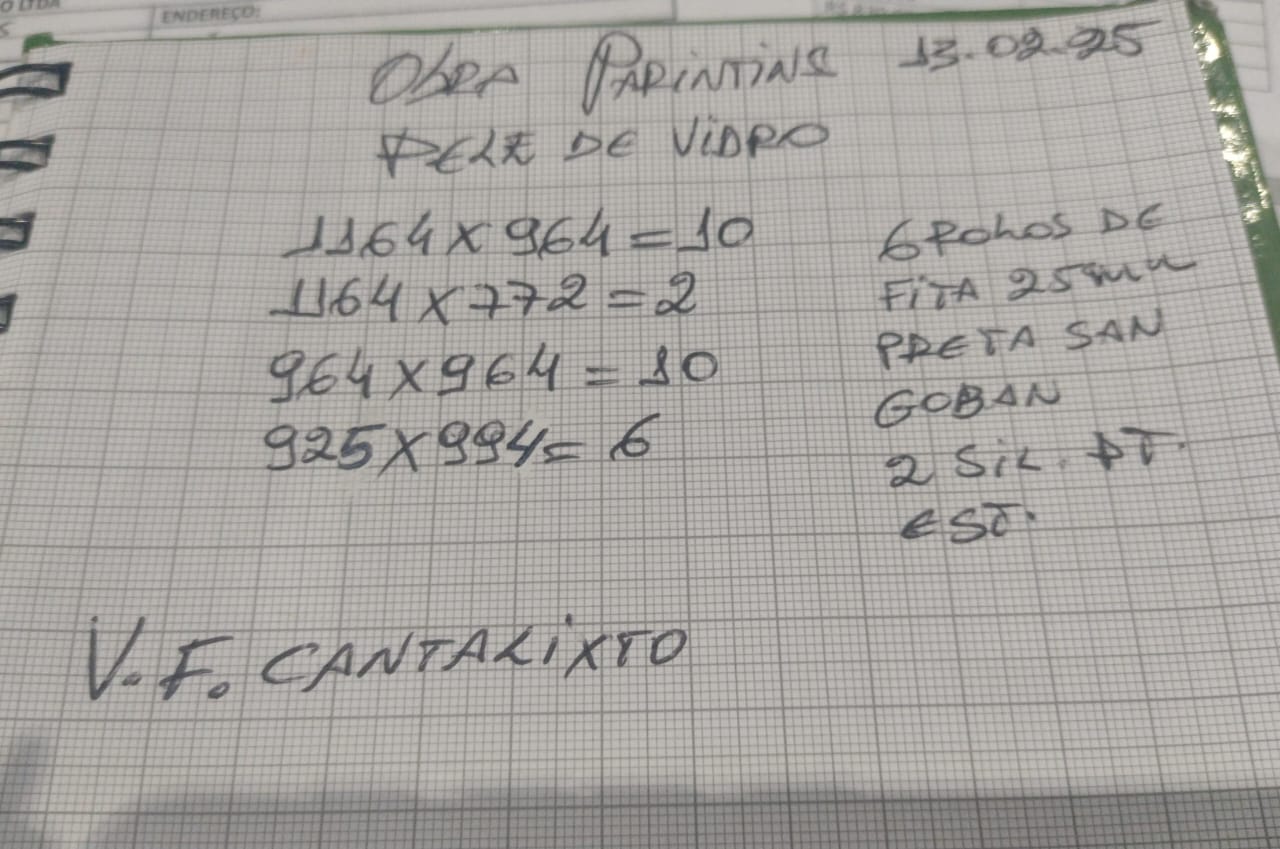 O LTDA
S
ENDEREÇO:
OBRA PARINTINS 13.02.25
PELE DE VIDRO
1164 X 964 = 10
1164 X 772 = 2
964 X 964 = 10
925 X 994 = 6
6 ROLOS DE
FITA 25mm
PRETA SAN
GOBAN
2 SIL. PT.
EST.
V.F. CANTALIXTO